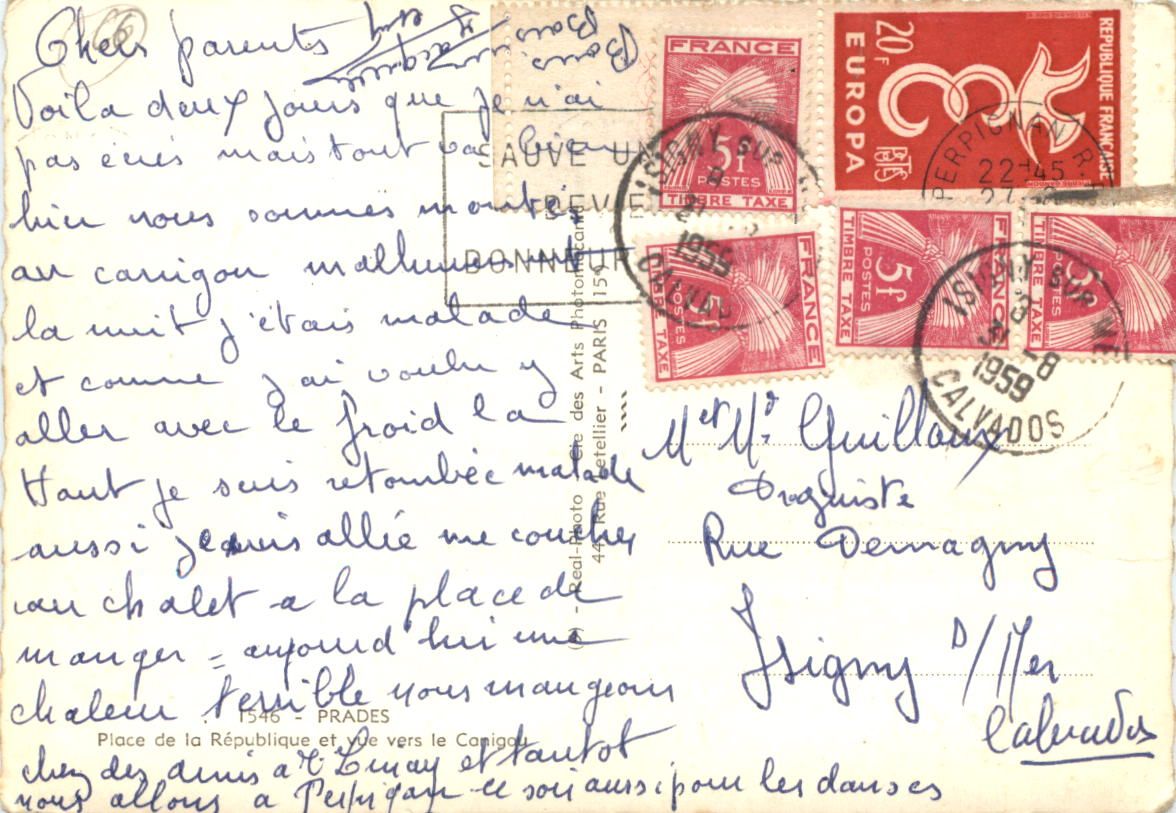 Chers parents
Voila deux jours que je n'ai
pas écris mais tout va bien
hier nous sommes montés
au canigou malheureusement
la nuit j'étais malade
et comme j'ai voulu y
aller avec le froid la
Haut je suis retombée malade
aussi je suis allée me coucher
au chalet a la place de
manger = aujourd'hui une
chaleur terrible nous mangeons
chez des amis a et tantot
nous allons a Perpignan ce soir aussi pour les danses
Bons
Bais
Jacqueline
66
SAUVE UN
BONNEUR
FRANCE
5f
POSTES
TIMBRE TAXE
REPUBLIQUE FRANÇAISE
20F
EUROPA
POSTES
PERPIGNAN R.
22H45
ISIGNY SUR
CALVADOS
FRANCE
POSTES
TIMBRE TAXE
FRANCE
5f
POSTES
TIMBRE TAXE
FRANCE
5f
POSTES
TIMBRE TAXE
ISIGNY SUR
31-8
1959
CALVADOS
Real-Photo Cie des Arts Photomécaniques
44, Rue Letellier - PARIS 15e
Met Me Guilloux
Droguiste
Rue Demagny
Isigny s/Mer
Calvados
1546 - PRADES
Place de la République et vue vers le Canigou